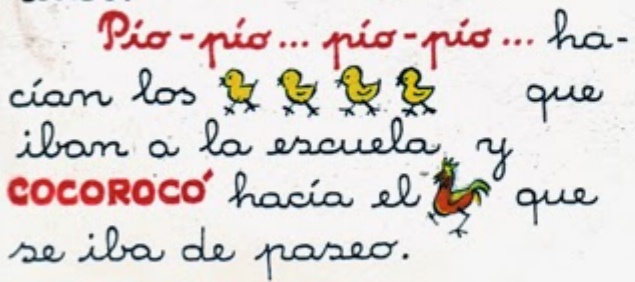 Pío-pío... pío-pío... ha-
cían los que
iban a la escuela y
COCOROCÓ hacía el que
se iba de paseo.